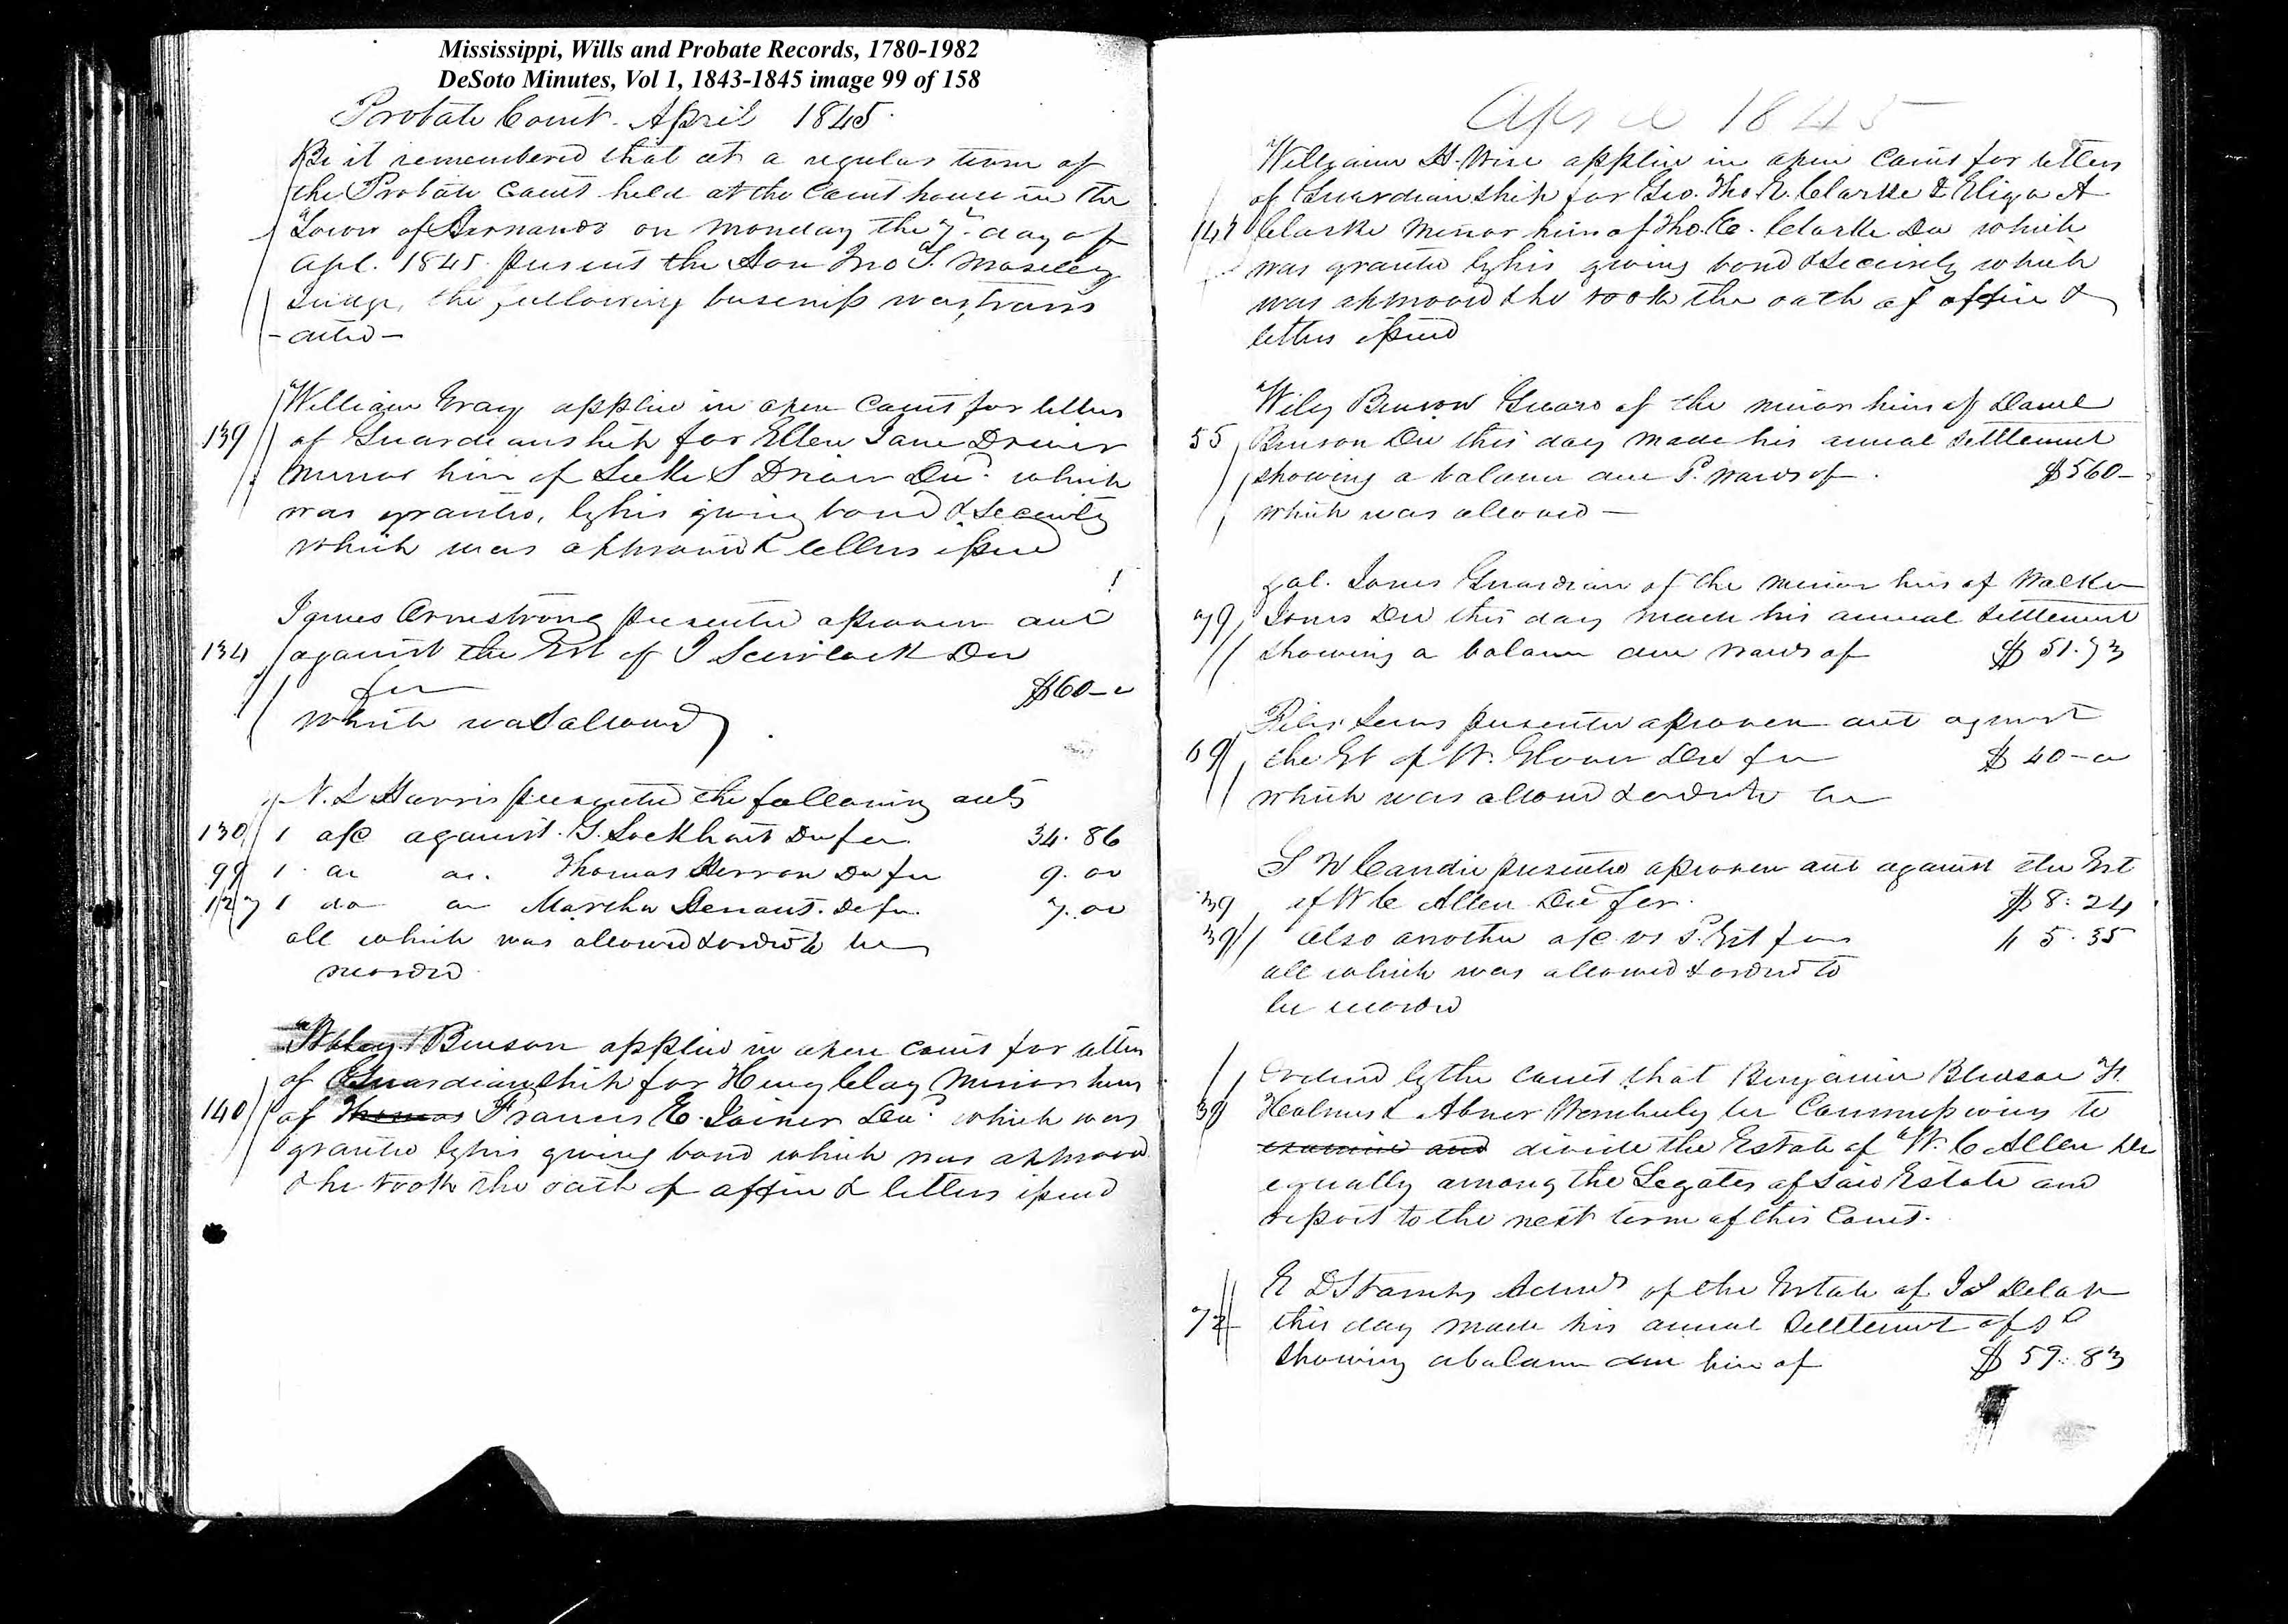 Mississippi, Wills and Probate Records, 1780-1982
DeSoto Minutes, Vol 1, 1843-1845 image 99 of 158
Probate Court. April 1845.
Be it remembered that at a regular term of
the Probate Court held at the Court house in the
Town of Hernando on Monday the 7th day of
Apl. 1845 present the Hon Jno S. Moseley
Judge, the following business was trans
- acted -
William Gray applied in open Court for letters
139 of Guardianship for Ellen Jane Driver
minor heir of S Driver Decd. which
was granted, by his giving bond & Security
which was approved & letters issued
James Armstrong presented a proven acct
134 against the Est of J Scurlock Decd
for $60-
which was allowed
N. L Harris presented the following accts
130 1 a/c against G. Lockhart De for 34.86
99 1 do do. Thomas Herron De for 9.00
127 1 do do Martha De for 7.00
all which was allowed & ordered to be
recorded
Wiley Binson applied in open Court for letters
of Guardianship for Henry Clay minor heir
140 of Thomas Francis E. Joiner Decd which was
granted by his giving bond which was approved
& he took the oath of office & letters issued
April 1845
William H. Wise applied in open Court for letters
of Guardianship for Geo. Tho. E. Clarke & Eliza A
141 Clarke minor heirs of Tho. C. Clarke De which
was granted by his giving bond & Security which
was approved & he took the oath of office &
letters issued
Wiley Binson Guard of the minor heirs of Daniel
55 Binson De this day made his annual Settlement
showing a balance due S. wards of $560-
which was allowed -
Jones Guardian of the minor heirs of Walker
79 Jones De this day made his annual Settlement
showing a balance due wards of $51.73
presented a proven acct against
69 the Est of W. Glover De for $40-
which was allowed & ordered to be
S W presented a proven acct against the Est
39 of W C Allen De for. $8.24
39 Also another a/c vs S. Est for " 5.35
all which was allowed & ordered to
be recorded
Ordered by the Court that Benjamin Bledsoe
39 & Abner be Commissioners to
examine and divide the Estate of W. C Allen De
equally among the Legates of Said Estate and
report to the next term of this Court.
E D Admr of the Estate of J S
72 this day made his annual Settlement of sd
showing a balance due him of $59.83